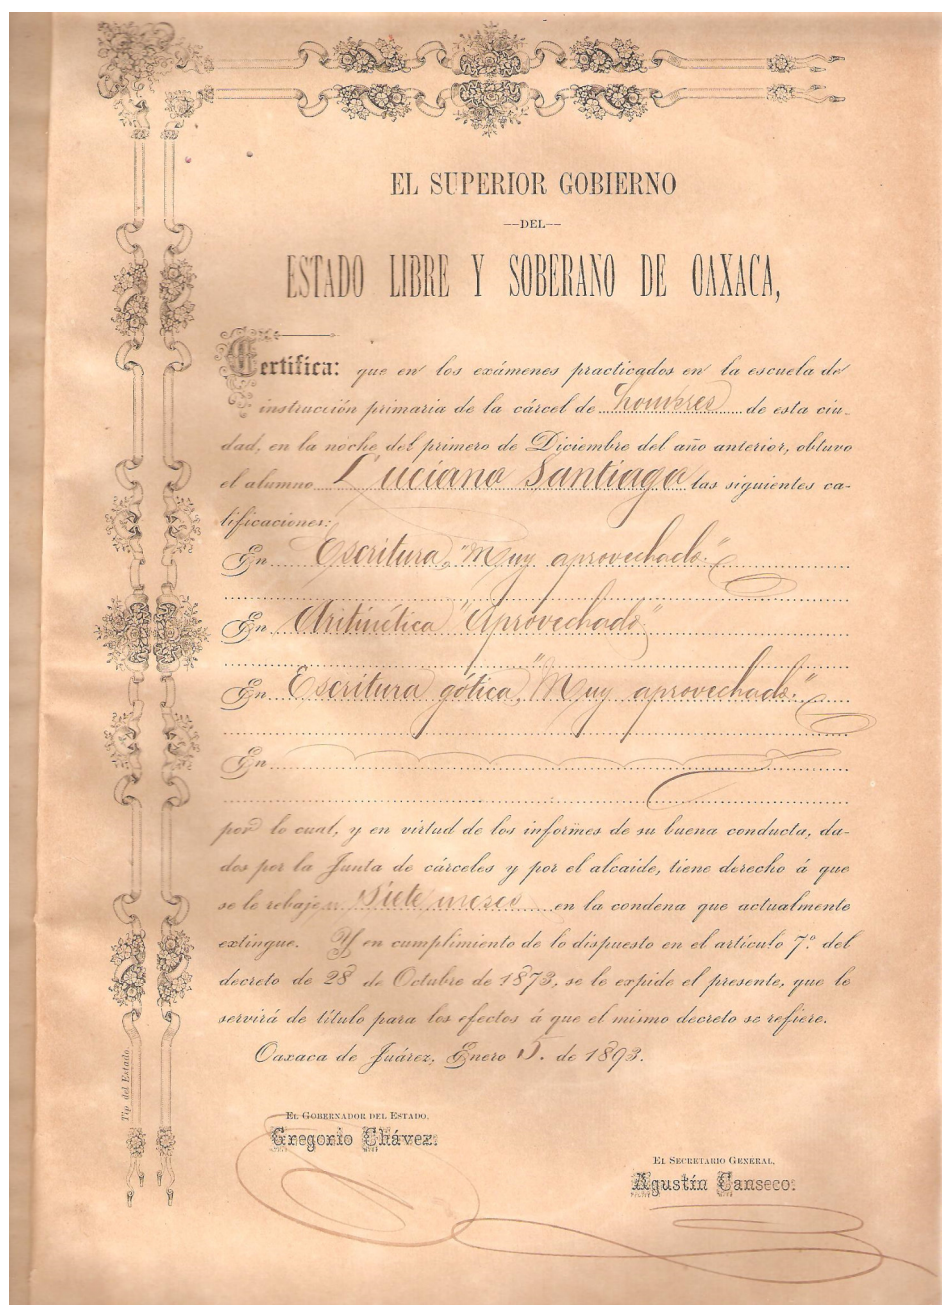 EL SUPERIOR GOBIERNO
—DEL—
ESTADO LIBRE Y SOBERANO DE OAXACA,
Certifica: que en los exámenes practicados en la escuela de
instrucción primaria de la cárcel de hombres de esta ciu-
dad, en la noche del primero de Diciembre del año anterior, obtuvo
el alumno Luciano Santiago las siguientes ca-
lificaciones:
En Escritura, "Muy aprovechado."
En Aritmética "Aprovechado"
En Escritura gótica, "Muy aprovechado."
En
por lo cual, y en virtud de los informes de su buena conducta, da-
dos por la Junta de cárceles y por el alcaide, tiene derecho á que
se le rebajen Siete meses en la condena que actualmente
extingue. Y en cumplimiento de lo dispuesto en el artículo 7º. del
decreto de 28 de Octubre de 1873, se le expide el presente, que le
servirá de título para los efectos á que el mismo decreto se refiere.
Oaxaca de Juárez, Enero 15. de 1893.
Tip. del Estado
EL GOBERNADOR DEL ESTADO,
Gregorio Chávez.
EL SECRETARIO GENERAL,
Agustín Canseco.